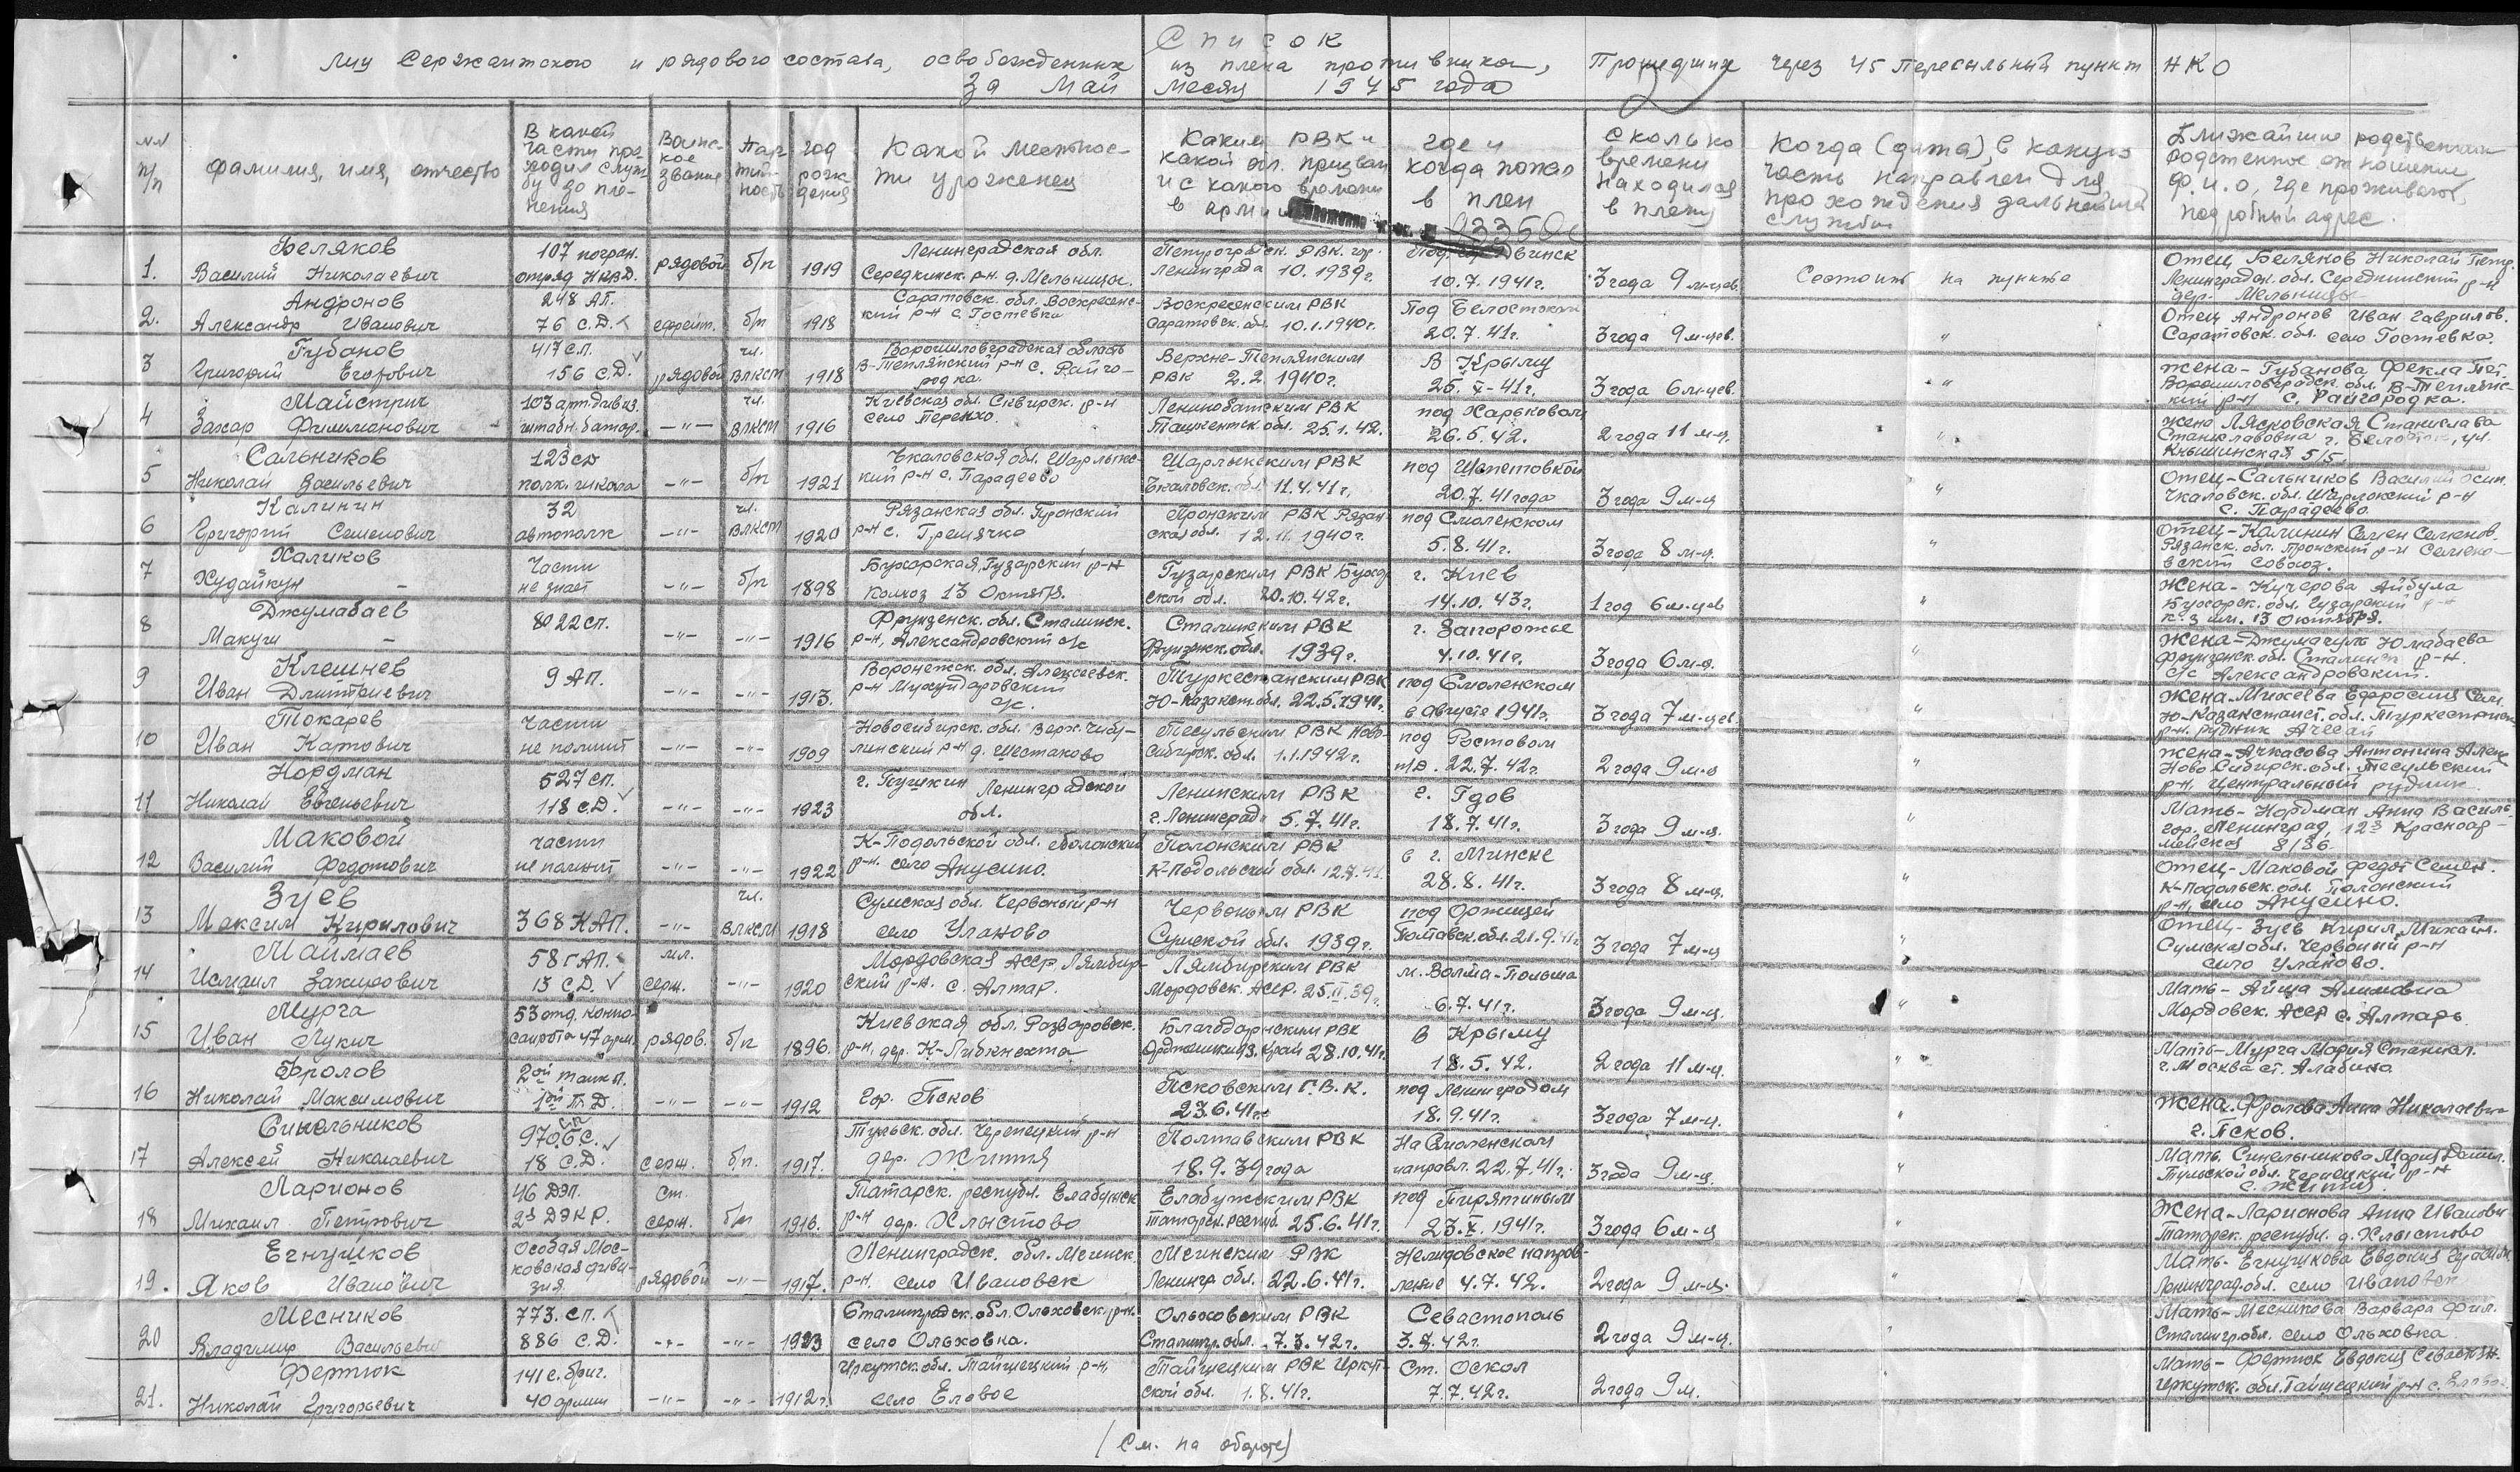 Список
лиц Сержантского и рядового состава, освобожденных из плена противника, Прошедших через 45 Пересыльный пункт НКО
За Май месяц 1945 года
№№ п/п
Фамилия, имя, отчество
В какой части проходил службу до пленения
Воинское звание
Партийность
год рождения
Какой местности уроженец
Каким РВК и какой обл. призван и с какого времени в армии
где и когда попал в плен
Сколько времени находился в плену
Когда (дата), в какую часть направлен для прохождения дальнейшей службы
Ближайшие родственники родственное отношение Ф.И.О, где проживают, подробный адрес.
1. Беляков Василий Николаевич 107 погран. отряд НКВД. рядовой б/п 1919 Ленинградская обл. Середкинск. р-н. д. Мельницы. Петроградск. РВК. гор. Ленинграда 10.1939г. Двинск 10.7.1941г. 3 года 9 м-цев. Состоит на пункте Отец Беляков Николай Петр. Ленинградск. обл. Середкинский р-н дер. Мельницы
2. Андронов Александр Иванович 248 АП. 76 С.Д. ефрейт. б/п 1918 Саратовск. обл. Воскресенский р-н с Гостевка Воскресенским РВК Саратовск. обл. 10.1.1940г. Под Белостоком 20.7.41г. 3 года 9 м-цев. " Отец Андронов Иван Гаврилов. Саратовск. обл. село Гостевка.
3 Губанов Григорий Егорович 417 с.п. 156 С.Д. рядовой чл. ВЛКСМ 1918 Ворошиловградская область В-Теплянский р-н с. Райгородка. Верхне-Теплянским РВК 2.2.1940г. В Крыму 25.X-41г. 3 года 6 м-цев. " Жена - Губанова Фекла Пет. Ворошиловградск. обл. В-Теплянский р-н с. Райгородка.
4 Майстрич Захар Филимонович 103 арт. дивиз. штабн. батар. -"- чл. ВЛКСМ 1916 Киевская обл. Сквирск. р-н село Терехо. РВК Ташкентск. обл. 25.1.42. под Харьковом 26.5.42. 2 года 11 м-ц. " Жена Лясковская Станислава Станиславовна г. ул. Кнышинская 5/5.
5 Сальников Николай Васильевич 123 сд полк. школа -"- б/п 1921 Чкаловская обл. Шарлыкский р-н с. Парадеево Шарлыкским РВК Чкаловск. обл. 11.4.41г. под Шепетовкой 20.7.41 года 3 года 9 м-ц " Отец - Сальников Василий Осип. Чкаловск. обл. Шарлокский р-н с. Парадеево.
6 Калинин Григорий Семенович 32 автополк -"- чл. ВЛКСМ 1920 Рязанская обл. Пронский р-н с. Гремячко Пронским РВК Рязанская обл. 12.11.1940г. под Смоленском 5.8.41г. 3 года 8 м-ц. " Отец - Калинин Семен Семенов. Рязанск. обл. Пронский р-н Семеновский совхоз.
7 Халиков Худайкул - Части не знает -"- б/п 1898 Бухарская, Гузарский р-н колхоз 13 Октябр. Гузарским РВК Бухарской обл. 20.10.42г. г. Киев 14.10.43г. 1 год 6 м-цев " Жена - Кучерова Айбула Бухарск. обл. Гузарский р-н к-з им. 13 Октября.
8 Джумабаев Макуш - 8022 сп. -"- -"- 1916 Фрунзенск. обл. Сталинск. р-н, Александровский с/с Сталинским РВК Фрунзенск. обл. 1939г. г. Запорожье 4.10.41г. 3 года 6 м-ц. " Жена - Джумагул Юмабаева Фрунзенск. обл. Сталинск р-н. с/с Александровский.
9 Клешнев Иван Дмитриевич 9 АП. -"- -"- 1913. Воронежск. обл. Алексеевск. р-н Мухоударовский с/с. Туркестанским РВК Ю-Казахст. обл. 22.5.1941г. под Смоленском в августе 1941г. 3 года 7 м-цев. " Жена - Михеева Ефросиния Сем. Ю-Казахстанст. обл. Туркестанск р-н. рудник Ачесай
10 Токарев Иван Карпович Части не помнит -"- -"- 1909 Новосибирск. обл. Верх. Чебулинский р-н д. Шестаково Тесульским РВК Новосибирск. обл. 1.1.1942г. под Ростовом н/Д. 22.7.42г. 2 года 9 м-ц " Жена - Ачкасова Антонина Алекс Ново Сибирск. обл. Тесульский р-н. Центральный рудник.
11 Нордман Николай Евгеньевич 527 сп. 118 С.Д. -"- -"- 1923 г. Пушкин Ленинградской обл. Ленинским РВК г. Ленинград 5.7.41г. г. Гдов 18.7.41г. 3 года 9 м-ц. " Мать - Нордман Анна Василь. гор. Ленинград, 12я Красноармейская 8/36.
12 Маковой Василий Федотович части не помнит -"- -"- 1922 К-Подольской обл. р-н. село Анусино. Полонским РВК К-Подольский обл. 12.7.41. в г. Минске 28.8.41г. 3 года 8 м-ц. " Отец - Маковой Федот Семен. К-Подольск. обл. Полонский р-н, село Анусино.
13 Зуев Максим Кирилович 368 КАП. -"- чл. ВЛКСМ 1918 Сумская обл. Червоный р-н село Уланово Червоным РВК Сумской обл. 1939г. под Оржицей Полтавск. обл. 21.9.41г. 3 года 7 м-ц " Отец - Зуев Кирил Михайл. Сумская обл. Червоный р-н село Уланово.
14 Маймаев Исмаил Закирович 58 г АП. 13 С.Д. мл. серж. -"- 1920 Мордовская АССР Лямбирский р-н. с. Алтар. Лямбирским РВК Мордовск. АССР. 25.II.39г. м. Волма - Польша 6.7.41г. 3 года 9 м-ц. " Мать - Айша Алимовна Мордовск. АССР с. Алтарь
15 Мурга Иван Лукич 53 отд. конно-санрота 47 арм. рядов. б/п 1896. Киевская обл. Розваровск. р-н, дер. К-Либкнехта Благодарнским РВК Орджоникидз. край 28.10.41г. В Крыму 18.5.42. 2 года 11 м-ц. " Мать - Мурга Мария Станисл. г. Москва ст. Алабино
16 Фролов Николай Максимович 2ой танк п. 1ой Т.Д. -"- -"- 1912 Гор. Псков Псковским Г.В.К. 23.6.41г. под Ленинградом 18.9.41г. 3 года 7 м-ц. " Жена. Фролова Анна Николаевна г. Псков.
17 Синельников Алексей Николаевич 970 18 С.Д. серж. б/п. 1917. Тульск. обл. Черепецкий р-н дер. Жития Полтавским РВК 18.9.39 года На Смоленском направл. 22.7.41г. 3 года 9 м-ц. " Мать. Синельникова Мария Данил. Тульской обл. Черпецкий р-н с. Жития.
18 Ларионов Михаил Петрович 46 ДЭП. 23 ДЭКР. ст. серж. б/п 1916. Татарск. республ. Елабужск р-н дер. Хлыстово Елабужским РВК Татарск. республ. 25.6.41г. под Пирятиным 23.X.1941г. 3 года 6 м-ц " Жена - Ларионова Анна Иванов. Татарск. республ. д. Хлыстово
19. Егнушков Яков Иванович Особая Московская дивизия рядовой -"- 1917. Ленинградск. обл. Мгинск. р-н. село Ивановск Мгинским РВК Ленингр обл. 22.6.41г. Нелидовское направление 4.7.42. 2 года 9 м-ц. " Мать - Егнушкова Евдокия Ленинград. обл. село Ивановск
20 Месников Владимир Васильевич 773. сп. 886 С.Д. -"- -"- 1923 Сталинградск. обл. Ольховск. р-н. село Ольховка. Ольховским РВК Сталингр. обл. 7.3.42г. Севастополь 3.7.42г. 2 года 9 м-ц. " Мать - Месникова Варвара Фил. Сталингр. обл. село Ольховка
21. Фертюк Николай Григорьевич 141 с. бриг. 40 армии -"- -"- 1912г. Иркутск. обл. Тайшецкий р-н, село Еловое Тайшецким РВК Иркутской обл. 1.8.41г. Ст. Оскол 7.7.42г. 2 года 9 м. Мать - Фертюк Евдокия Севастян. Иркутск. обл. Тайшецкий р-н с.
(См. на обороте)